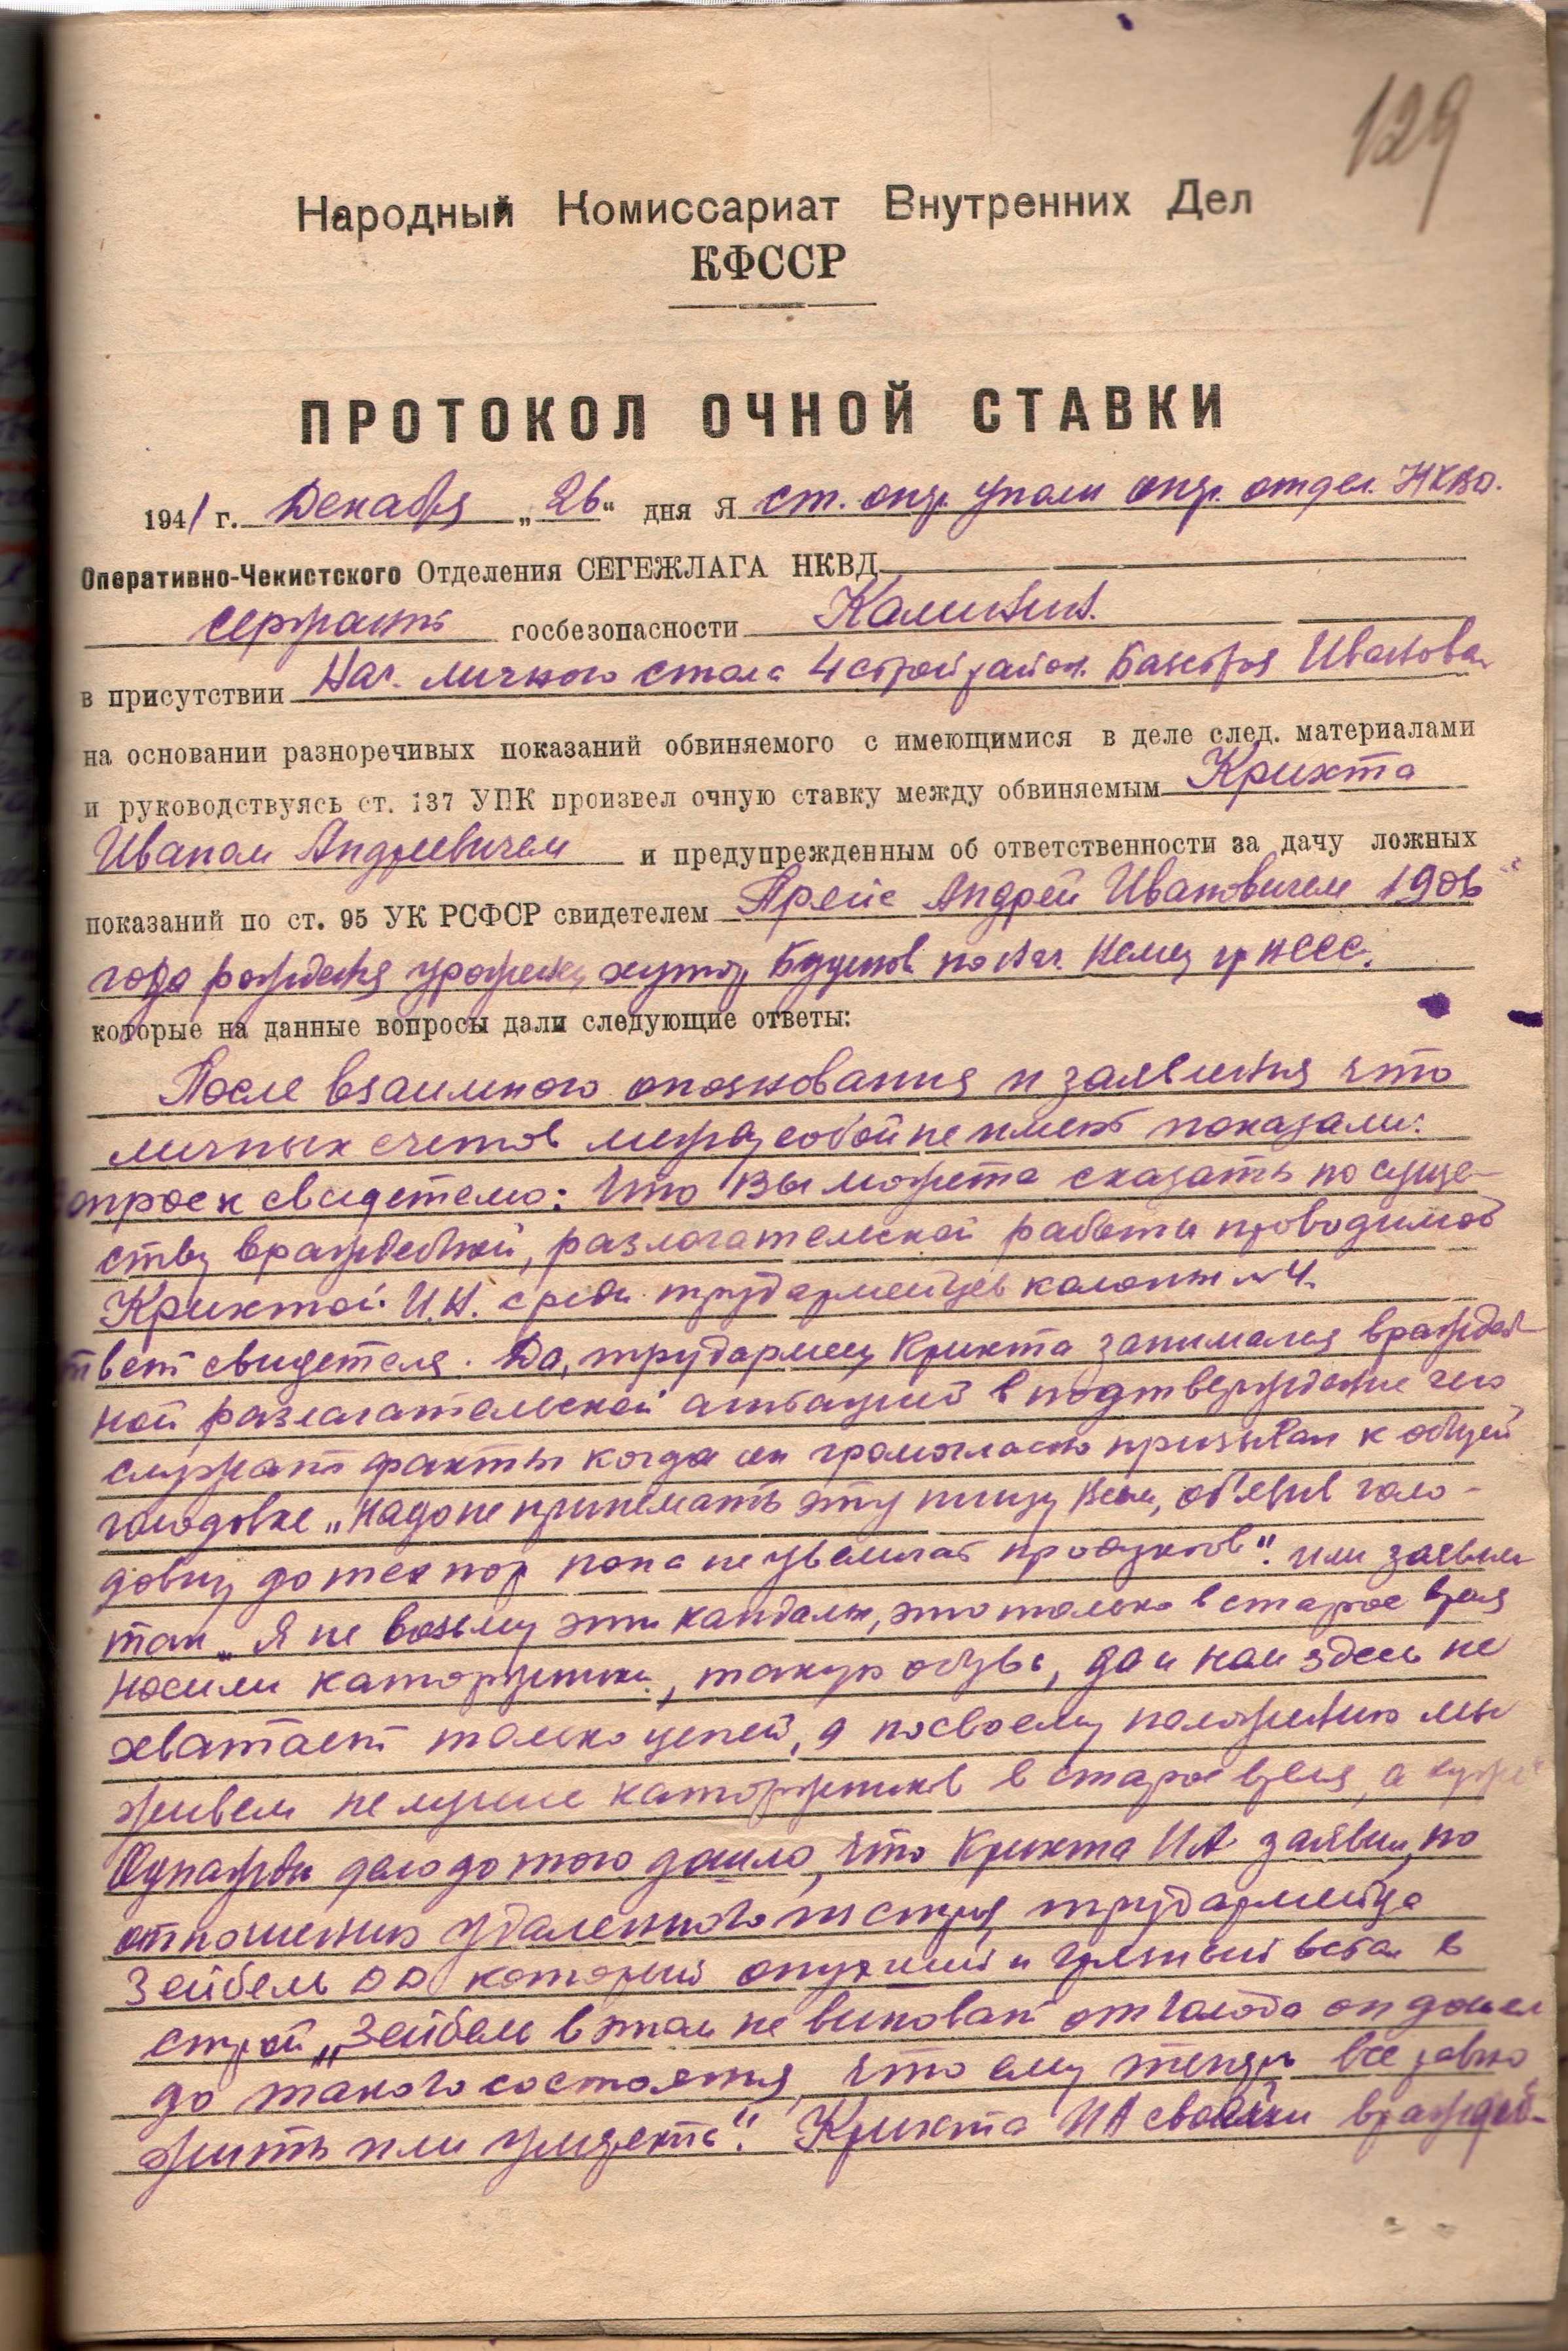 129
Народный Комиссариат Внутренних Дел
КФССР
ПРОТОКОЛ ОЧНОЙ СТАВКИ
1941 г. Декабря „26“ дня Я ст. опер. уполн опер. отдел. НКВД.
Оперативно-Чекистского Отделения СЕГЕЖЛАГА НКВД
сержант госбезопасности Калинин.
в присутствии Нач. личного стола 4 стройрайон. Иванова
на основании разноречивых показаний обвиняемого с имеющимися в деле след. материалами
и руководствуясь ст. 137 УПК произвел очную ставку между обвиняемым Крихта
Иваном Андреевичем и предупрежденным об ответственности за дачу ложных
показаний по ст. 95 УК РСФСР свидетелем Прейс Андрей Ивановичем 1906
года рождения урожен, хутор. по нац. Немец гр
которые на данные вопросы дали следующие ответы:
После взаимного опознования и заявления что
личных счетов между собой не имеют показали:
опрос к свидетелю: Что Вы можете сказать по суще-
ству враждебной, разлогательской работы проводимой
Крихтой И.А. среди трудармейцев колонны № 4.
твет свидетеля. Да, трудармеец Крихта занимался враждеб-
ной разлогательской агитацией в подтверждение чего
служат факты когда он громогласно призывал к общей
голодовке „Надо не принемать эту пищу всем, об'явив голо-
довку до тех пор пока не увеличат продуктов“. или заявил
так „Я не возьму эти кандалы, это только в старое время
носили каторжники, такую обувь, да и нам здесь не
хватает только цепей, а по своему положению мы
живем не лучше каторжников в старое время, а хуже
Однажды дело до того дошло, что Крихта ИА заявил, по
отношению удаленного из строя трудармейца
Зейбель ДД который опухший и грязный встал в
строй „Зейбель в этом не виноват от голода он дошел
до такого состояния, что ему теперь все равно
жить или умереть“. Крихта ИА своими враждеб-